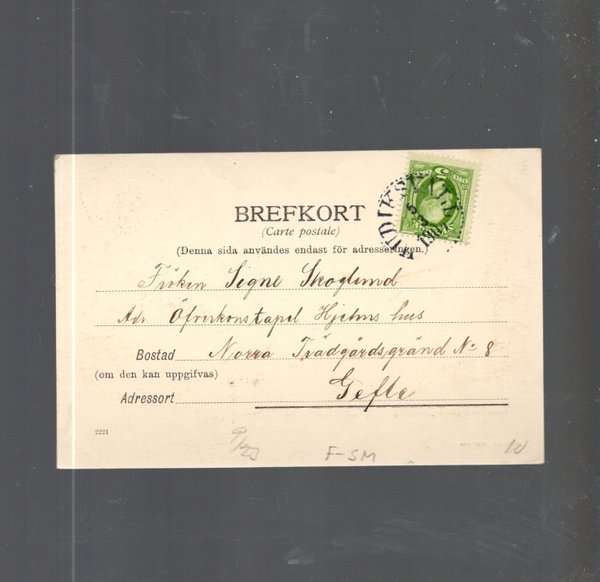 BREFKORT
(Carte postale)
(Denna sida användes endast för adresseringen.)
Fröken Signe Skoglund
Adr Öfverkonstapel Hjelms hus
Bostad Norra Trädgårdsgränd No 8
(om den kan uppgifvas)
Adressort Gefle
2221
F-SM
10
HUDIKSVALL
5